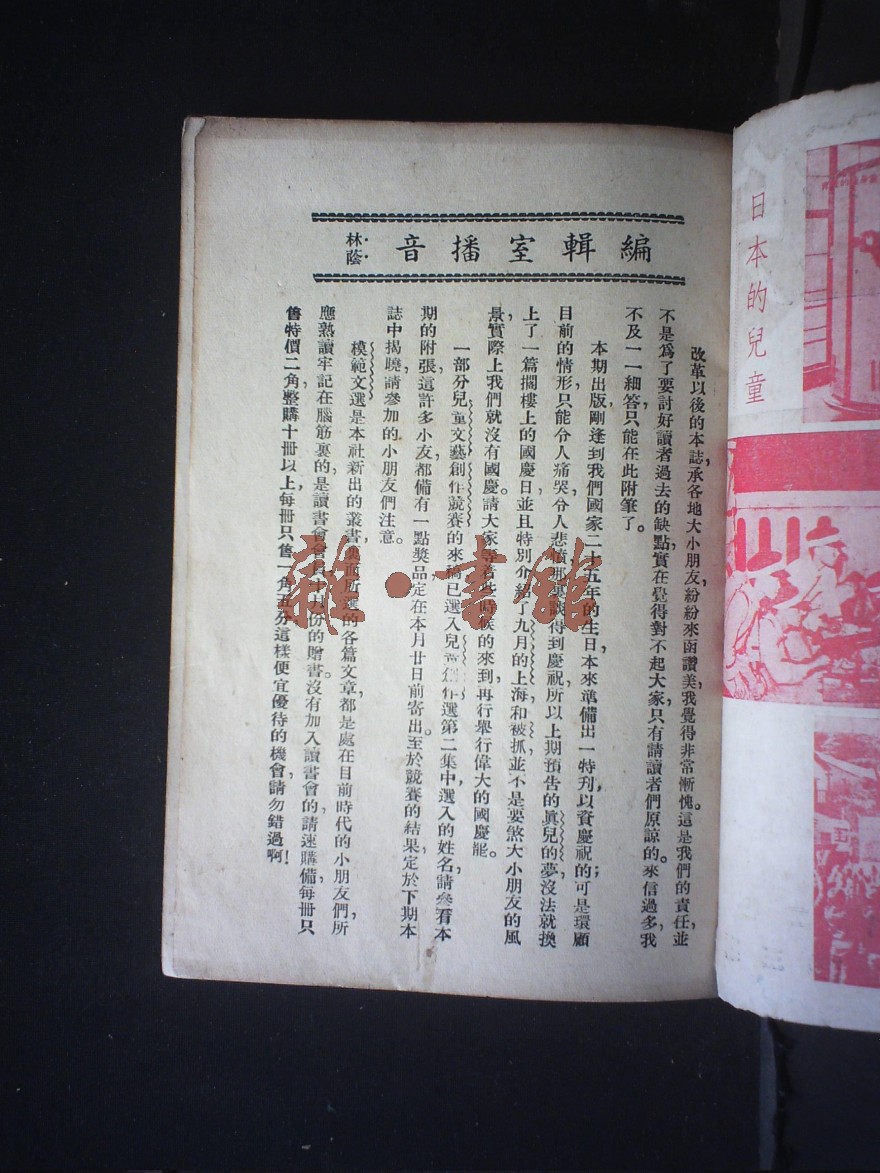 編輯室播音
林蔭
改革以後的本誌，承各地大小朋友，紛紛來函讚美，我覺得非常慚愧。這是我們的責任，並
不是爲了要討好讀者，過去的缺點，實在覺得對不起大家，只有請讀者們原諒的。來信過多，我
不及一一細答，只能在此附筆了。
本期出版，剛逢到我們國家二十五年的生日，本來準備出一特刊，以資慶祝的；可是環顧
目前的情形，只能令人痛哭，令人悲憤，那裏談得到慶祝，所以上期預告的眞兒的夢，沒法就換
上了一篇擱樓上的國慶日，並且特別介紹了九月的上海，和被抓，並不是要煞大小朋友的風
景，實際上我們就沒有國慶。請大家等着些時候的來到，再行舉行偉大的國慶罷。
一部分兒童文藝創作競賽的來稿，已選入兒童創作選第二集中，選入的姓名，請參看本
期的附張，這許多小友，都備有一點獎品，定在本月廿日前寄出。至於競賽的結果，定於下期本
誌中揭曉，請參加的小朋友們注意。
模範文選是本社新出的叢書，裏面所選的各篇文章，都是處在目前時代的小朋友們，所
應熟讀牢記在腦筋裏的，是讀書會會員十月份的贈書。沒有加入讀書會的，請速購備，每冊只
售特價二角，整購十冊以上，每冊只售一角五分，這樣便宜優待的機會，請勿錯過啊！
日本的兒童
雜·書館